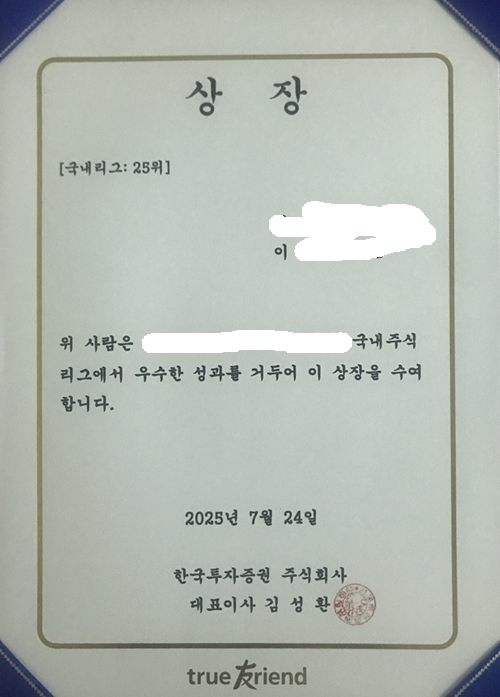 상 장
[국내리그: 25위]
이
위 사람은 국내주식
리그에서 우수한 성과를 거두어 이 상장을 수여
합니다.
2025년 7월 24일
한국투자증권 주식회사
대표이사 김 성 환
true 友riend